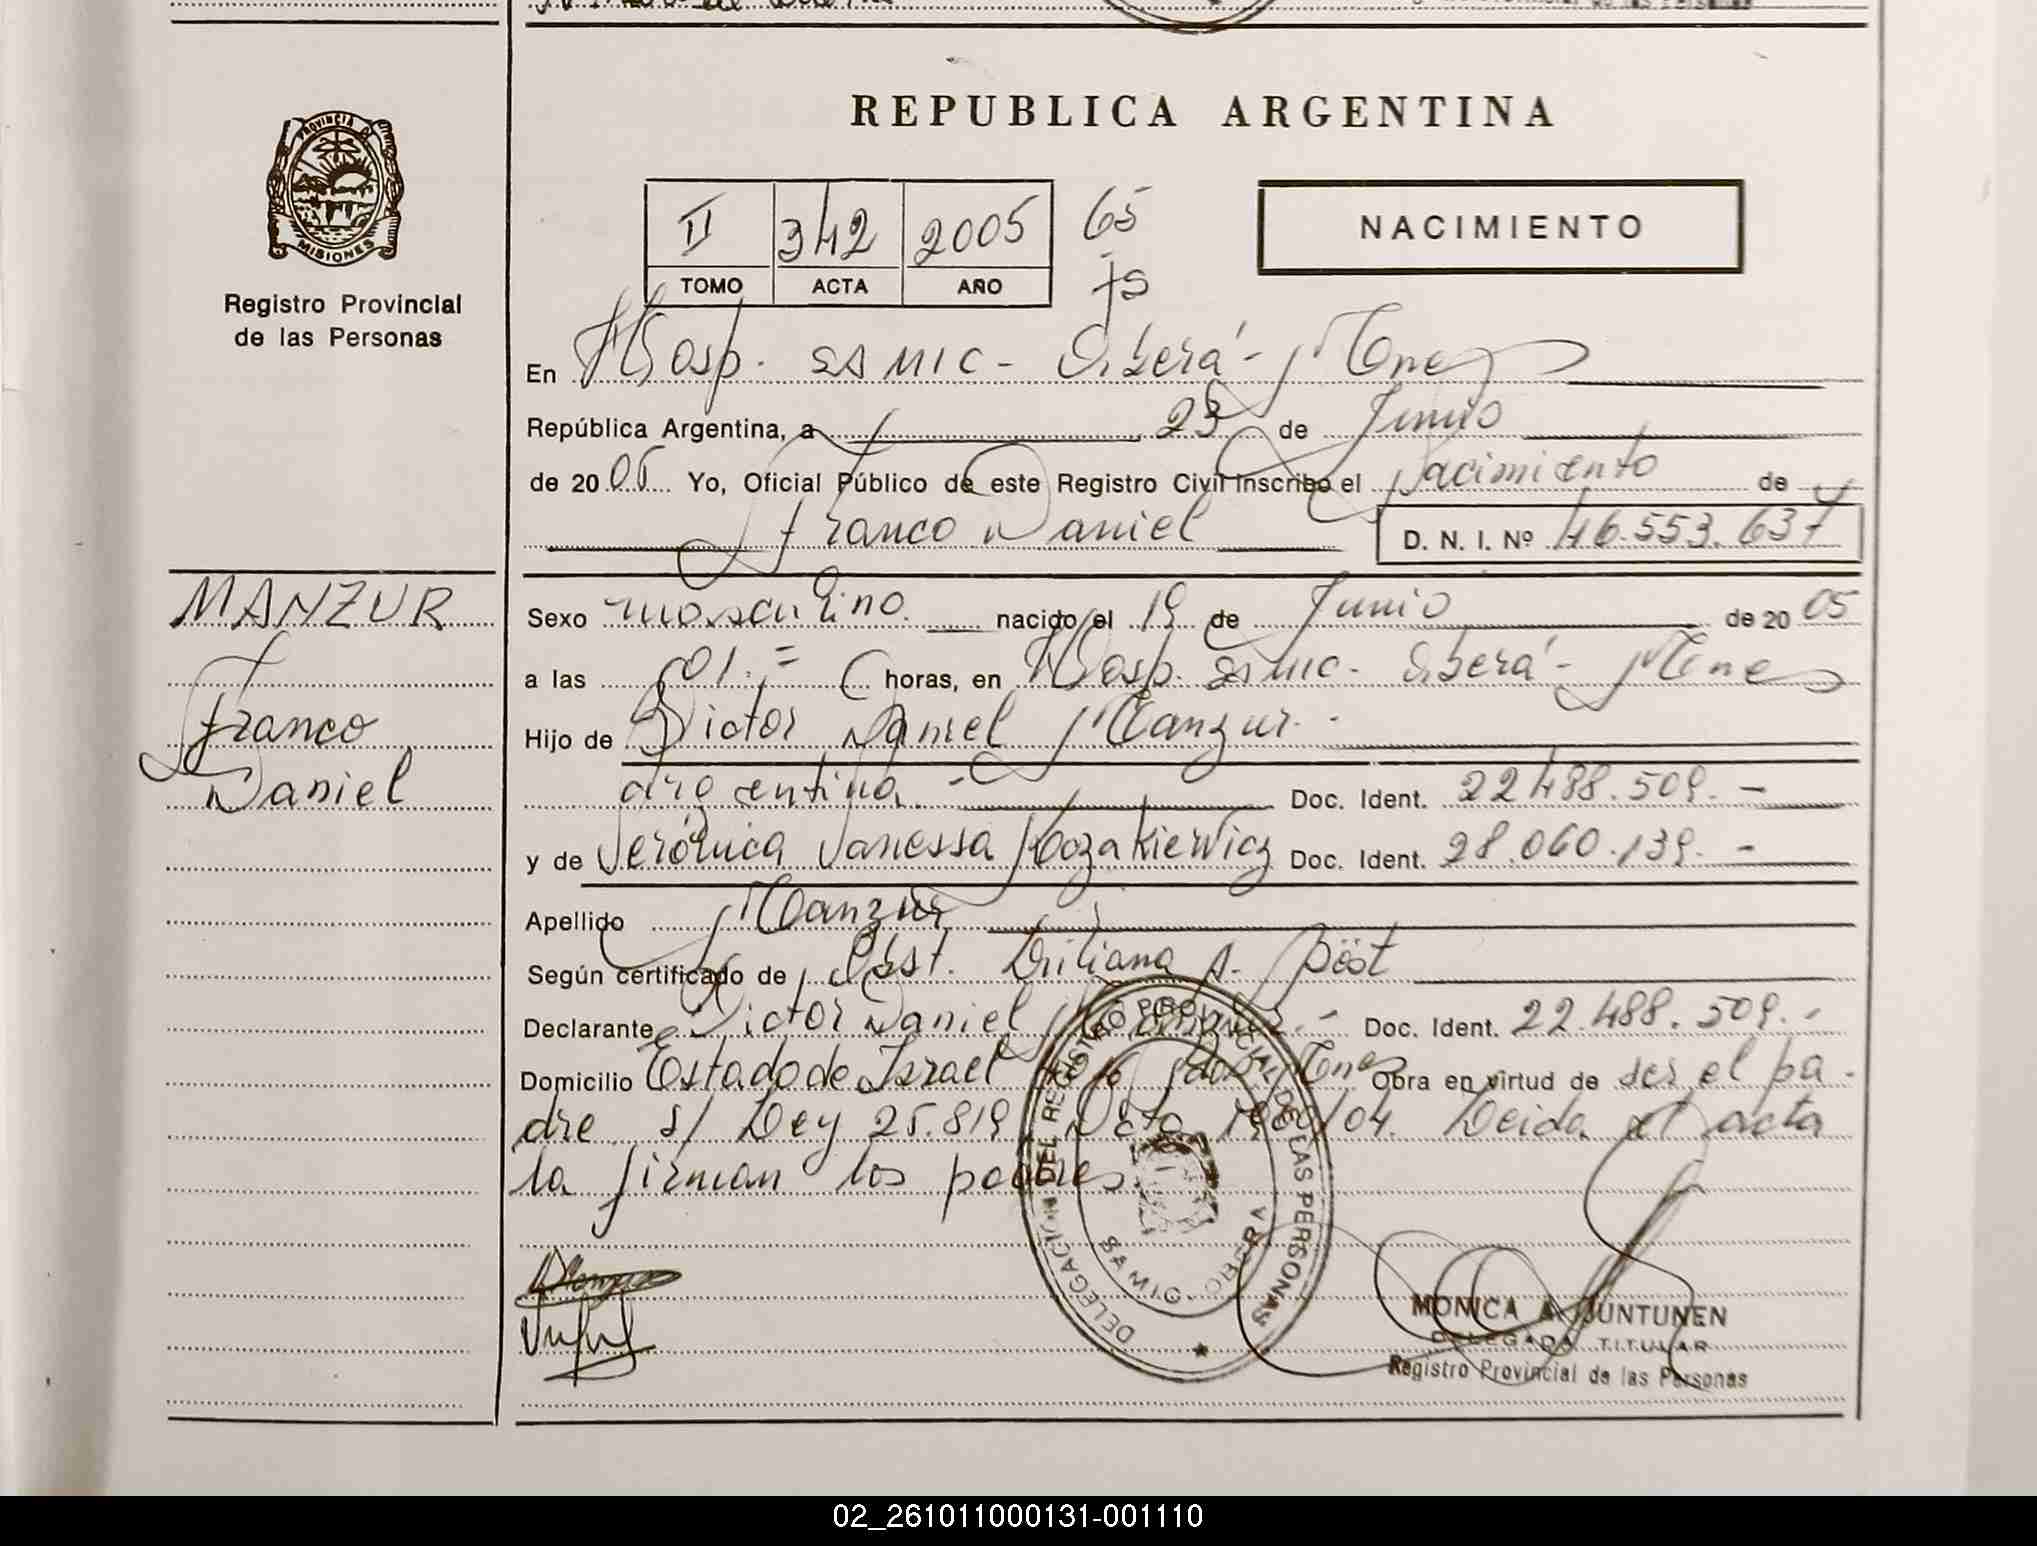 REPUBLICA ARGENTINA
PROVINCIA DE
MISIONES
Registro Provincial
de las Personas
II 342 2005 65
TOMO ACTA AÑO fs
NACIMIENTO
En Hosp. SAMIC - Oberá - Mnes
República Argentina, a 23 de Junio
de 2005 Yo, Oficial Público de este Registro Civil inscribo el Nacimiento de
Franco Daniel D. N. I. Nº 46.553.637
MANZUR
Franco
Daniel
Sexo masculino nacido el 19 de Junio de 2005
a las 01.= horas, en Hosp. SAMIC - Oberá - Mnes
Hijo de Victor Daniel Manzur.-
argentina.- Doc. Ident. 22.488.509.-
y de Verónica Vanessa Kozakiewicz Doc. Ident. 28.060.139.-
Apellido Manzur
Según certificado de Obst. Liliana A. Böst
Declarante Victor Daniel Manzur.- Doc. Ident. 22.488.509.-
Domicilio Estado de Israel Mnes Obra en virtud de ser el pa-
dre s/ Ley 25.819 Dcto 1980/04. Leida el acta
la firman los padres.
DELEGACION DEL REGISTRO PROVINCIAL DE LAS PERSONAS
SAMIC - OBERA
MONICA A. JUNTUNEN
DELEGADA TITULAR
Registro Provincial de las Personas
02_261011000131-001110